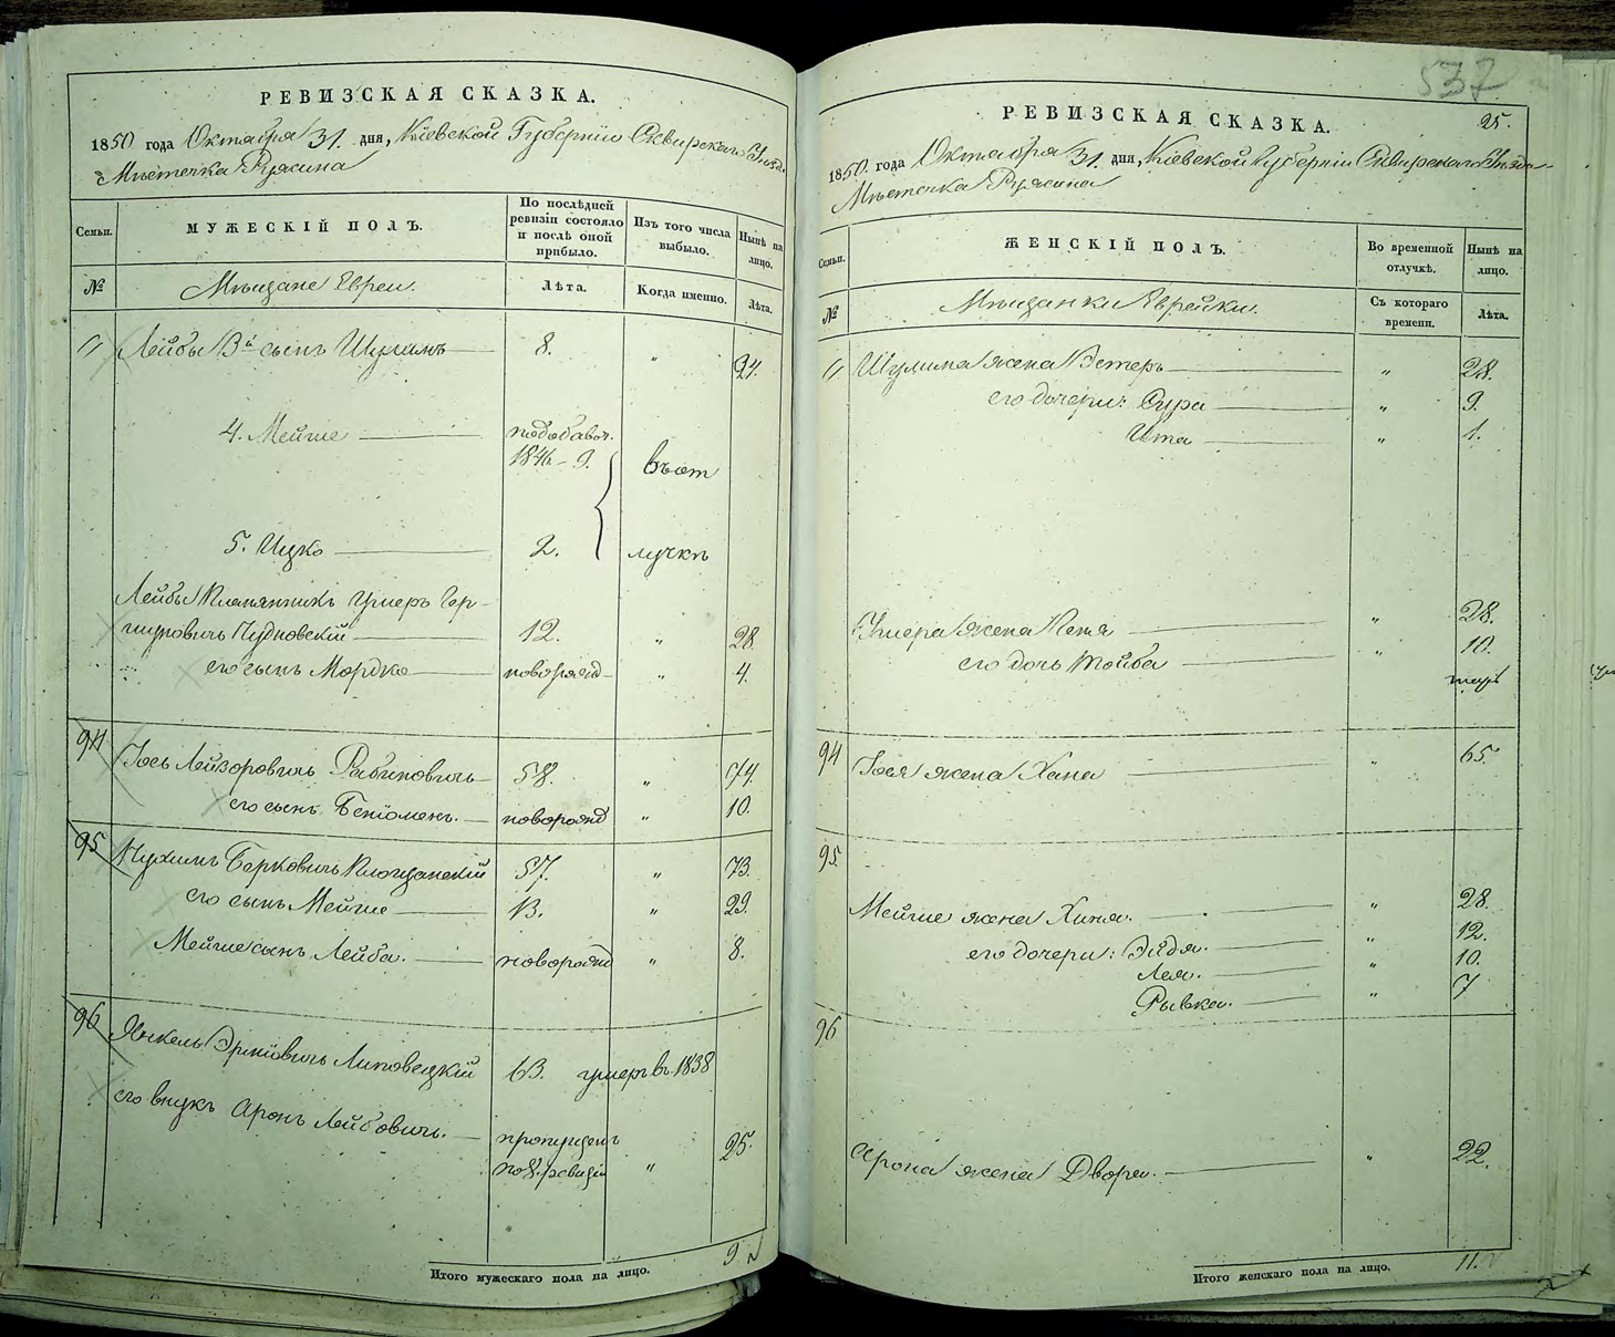 РЕВИЗСКАЯ СКАЗКА.
1850 года Октября 31. дня, Кіевской Губерніи Сквирскаго Уѣзд.
Мѣстечка Ружина
Семьи.
МУЖЕСКІЙ ПОЛЪ.
По послѣдней ревизіи состояло и послѣ оной прибыло.
Изъ того числа выбыло.
Нынѣ на лицо.
№
Мѣщане Евреи.
Лѣта.
Когда именно.
Лѣта.
Лейбы 3й сынъ Шулимъ 8. „ 24.
4. Мейше
подобавоч. 1846 - 9. въ от
5. Ицко 2. лучкѣ
Лейбы Племянникъ Ушеръ Гер-
шковичъ Чудновскій 12. „ 28.
его сынъ Мордко новорожд „ 4.
94 Іось Лейзоровичъ Рабиновичъ 58. „ 74.
его сынъ Беніоменъ. новорожд „ 10.
95 Нухимъ Берковичъ 57. „ 73.
его сынъ Мейше 13. „ 29.
Мейше сынъ Лейба. новорожд „ 8.
96 Янкель Липовецкій 63. умеръ въ 1838
его внукъ Аронъ Лейбовичъ. пропущенъ
по 8. ревизіи „ 25.
Итого мужескаго пола на лицо. 9
537
25.
РЕВИЗСКАЯ СКАЗКА.
1850. года Октября 31. дня, Кіевской Губерніи Сквирскаго Уѣзда
Мѣстечка Ружина
Семьи.
ЖЕНСКІЙ ПОЛЪ.
Во временной отлучкѣ.
Нынѣ на лицо.
№
Мѣщанки Еврейки.
Съ котораго времени.
Лѣта.
Шулима жена Эстеръ „ 28.
его дочери: Сура „ 9.
Ита „ 1.
Ушера жена „ 28.
его дочь Тойба „ 10.
94 Іося жена Хана „ 65.
95.
Мейше жена Хина. „ 28.
его дочери: Эйдя. „ 12.
Лея. „ 10.
Рывка. „ 7
96
Арона жена Двора. „ 22.
Итого женскаго пола на лицо. 11.